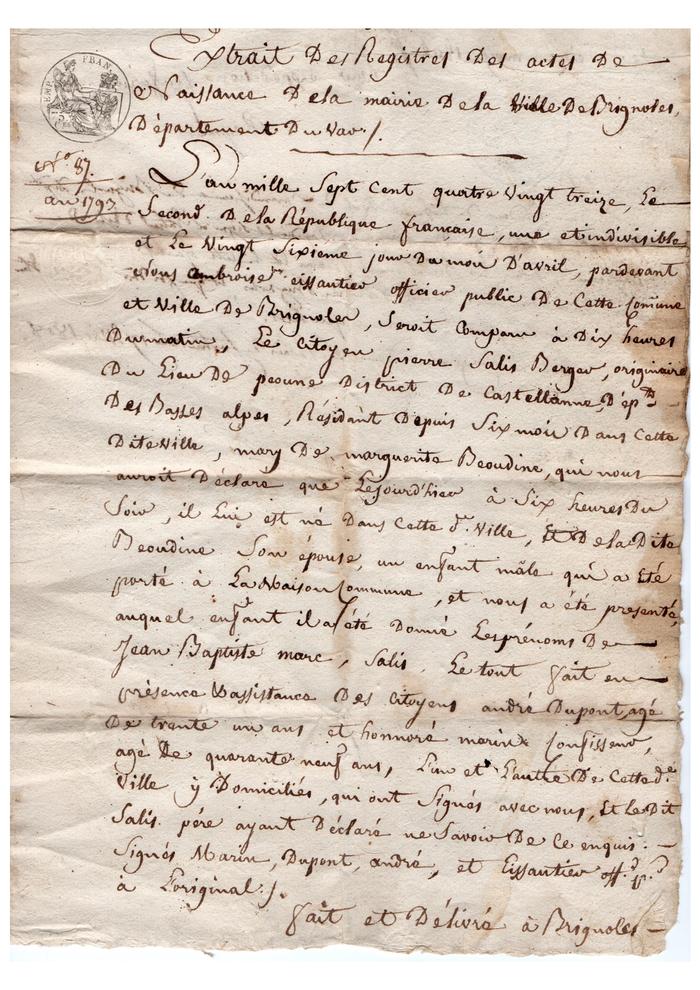 Extrait Des Registres Des actes De
Naissance De la mairie De la Ville De Brignoles,
Département Du var /.
EMP. FRAN.
N.° 87.
an 1793
L'an mille Sept Cent quatre Vingt treize, Le
Second De la République française, une et indivisible
et Le Vingt Sixième jour Du mois D'avril, pardevant
Nous ambroise eissautier officier public De Cette Commune
et Ville De Brignoles, Seroit Comparu à Dix heures
Du matin, Le Citoyen pierre Salis Berger, originaire
Du Lieu De peoune District De Castellanne, Dép.t
Des Basses alpes, Résidant Depuis Six mois Dans Cette
Dite Ville, mary De marguerite Beoudine, qui nous
auroit Déclaré que Lejourd'hier à Six heures Du
Soir, il Lui est né Dans Cette d.e Ville, Et De la Dite
Beoudine Son épouse, un enfant mâle qui a été
porté à La Maison Commune, et nous a été presenté,
auquel enfant il a été Donné Les prénoms De
Jean Baptiste marc, Salis. Le tout fait en
présence & assistance Des Citoyens andré Dupont, agé
De trente un ans et honnoré marin Confisseur,
agé De quarante neuf ans, L'un et L'autre De Cette d.e
Ville y Domiciliés, qui ont Signés avec nous, Et Le Dit
Salis père ayant Déclaré ne Savoir De Ce enquis. —
Signés Marin, Dupont, andré, et Eissautier off.r p.c
à L'original /.
fait et Délivré à Brignoles —